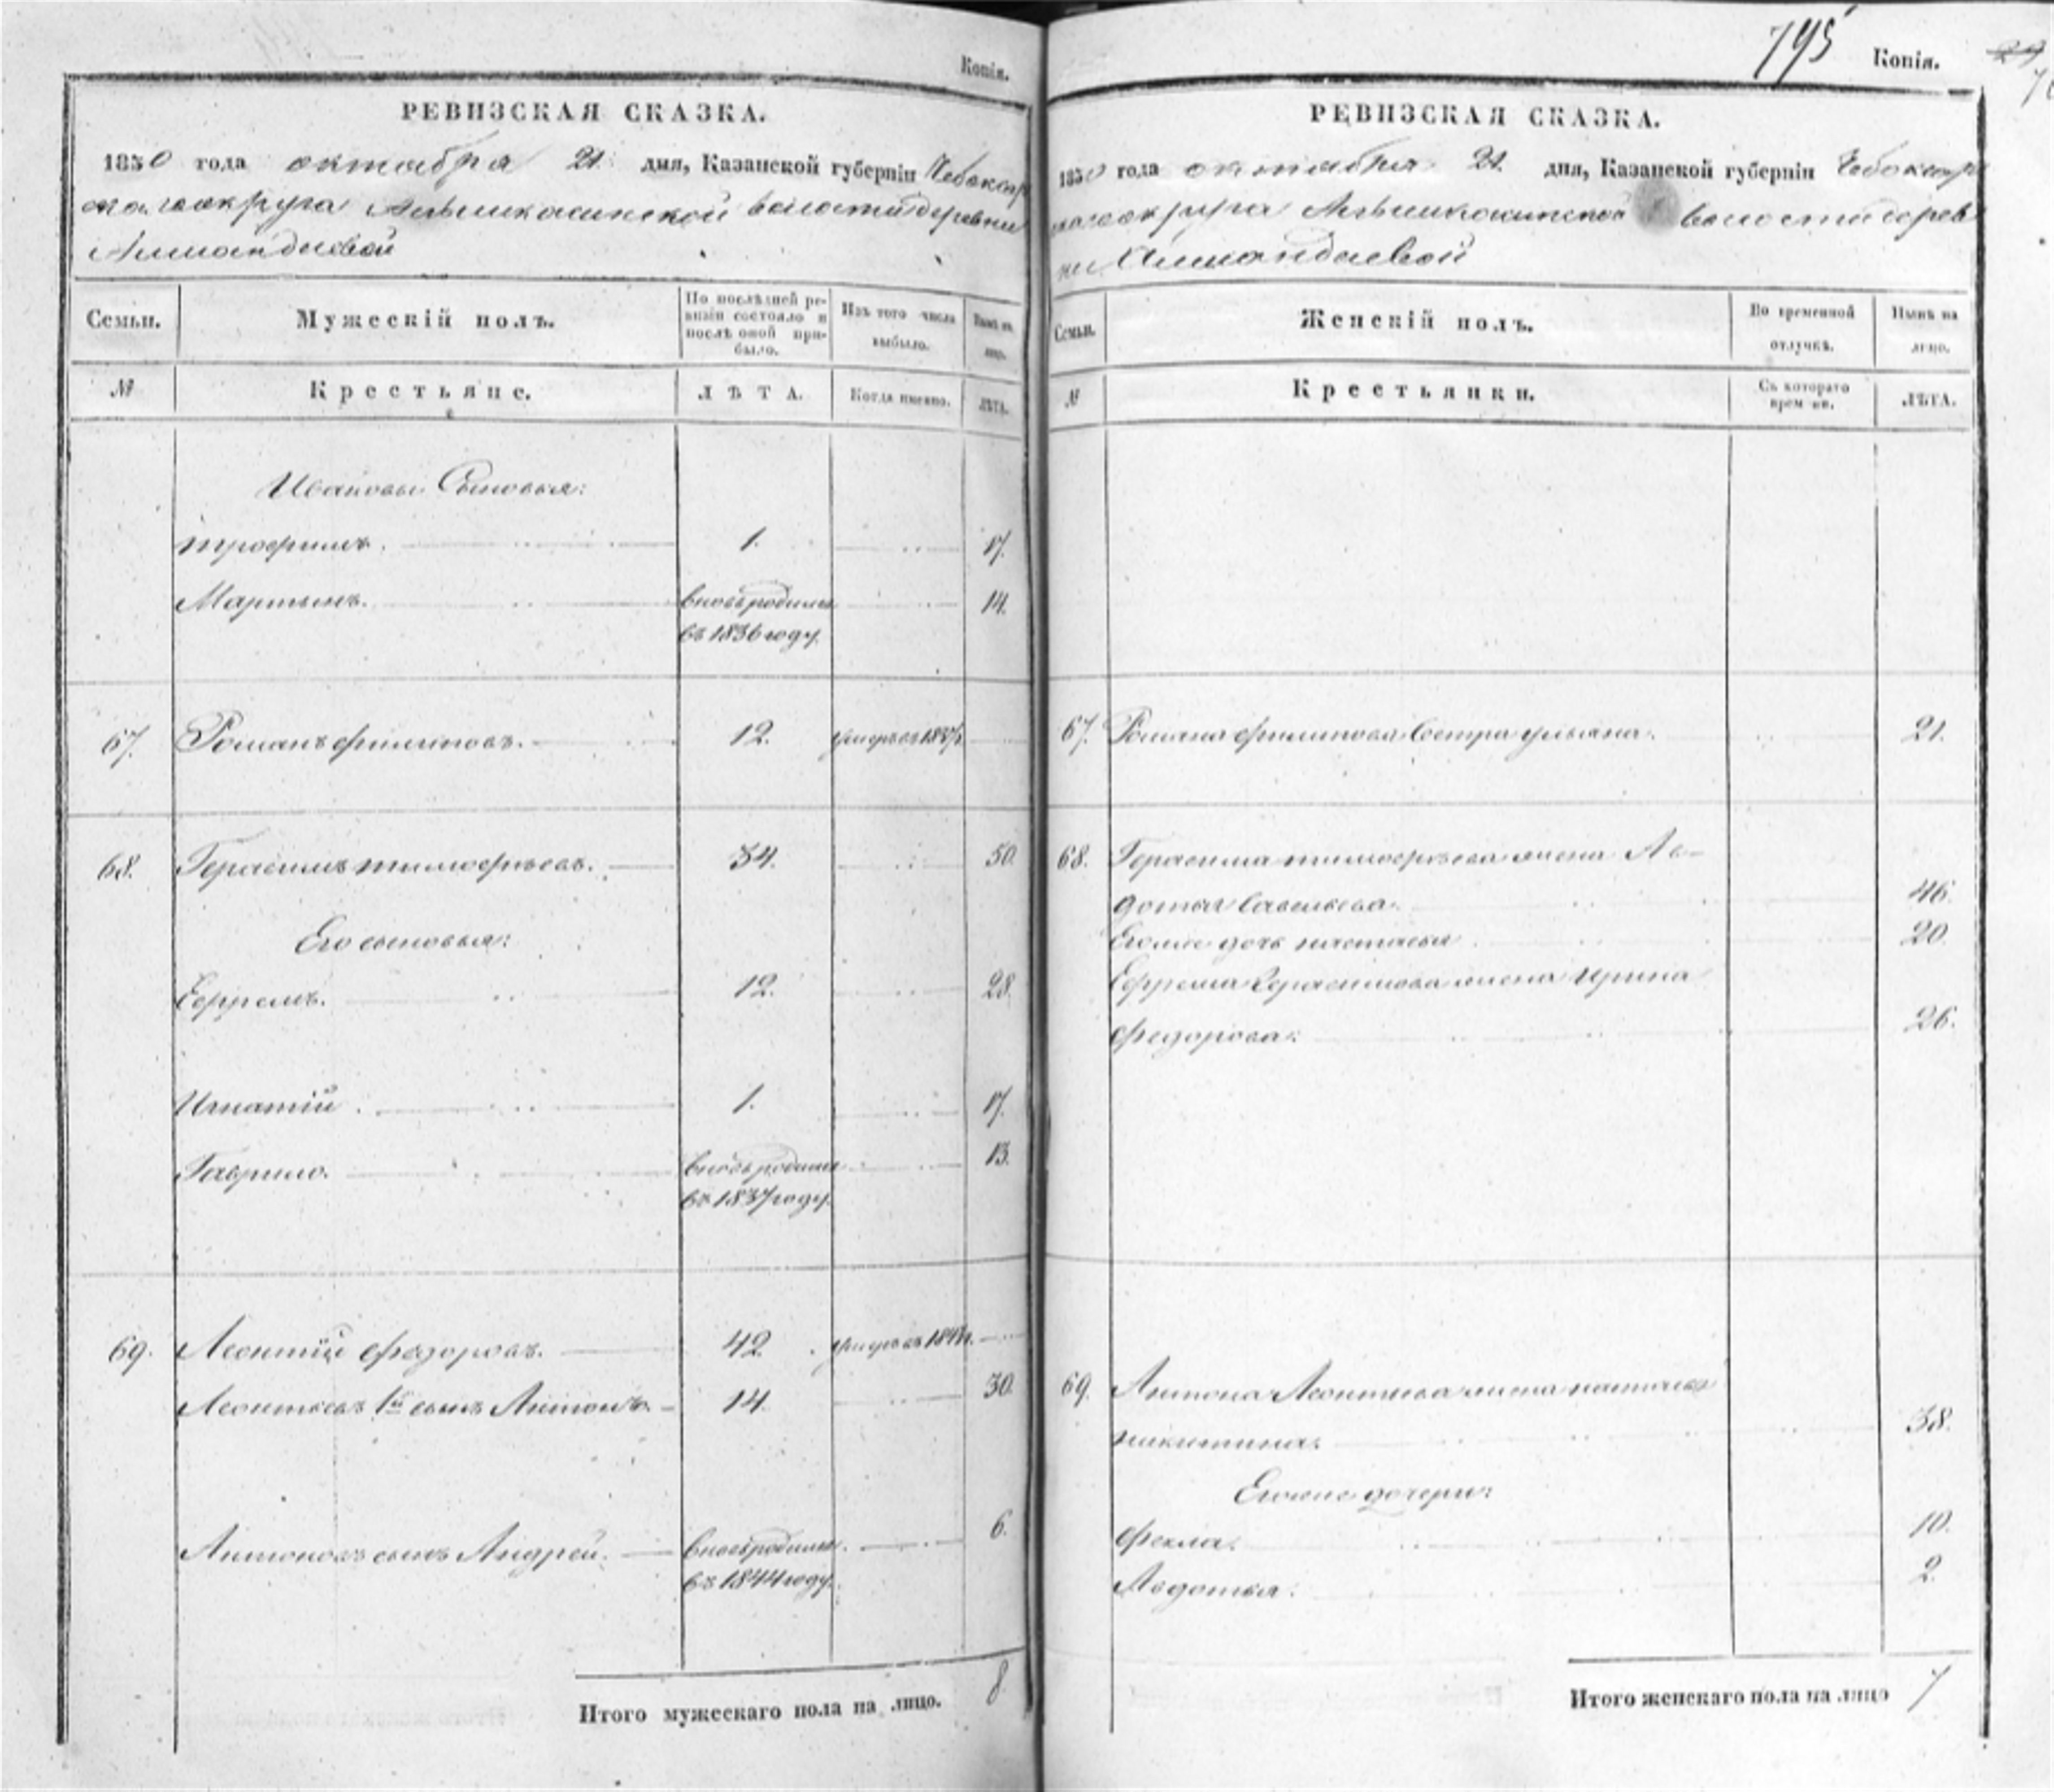 Копія.
РЕВИЗСКАЯ СКАЗКА.
1850 года октября 21 дня, Казанской губерніи Чебоксар
скаго округа Алымкасинской волости деревни
Алмандаевой
Семьи.
Мужескій полъ.
По послѣдней ре-
визіи состояло и
послѣ оной при-
было.
Изъ того числа
выбыло.
Нынѣ на
лицо.
№
Крестьяне.
ЛѢТА.
Когда именно.
ЛѢТА.
Ивановы Сыновья:
Трофимъ. 1. 17.
Мартынъ. вновьродился 14.
въ 1836 году.
67. Романъ филиповъ. 12.
68. Герасимъ тимофѣевъ. 34. 50.
Его сыновья:
Ефремъ. 12. 28.
Игнатій. 1. 17.
Гаврило. вновьродился 13.
въ 1837 году.
69. Леонтій федоровъ. 42.
Леонтьевъ 1й сынъ Антонъ 14. 30.
Антоновъ сынъ Андрей. вновьродился 6.
въ 1844 году.
Итого мужескаго пола на лицо. 8
795 Копія.
29
РЕВИЗСКАЯ СКАЗКА.
1850 года октября 21. дня, Казанской губерніи Чебоксар
скаго округа Алымкасинской волости дерев
ни Алмандаевой
Семьи.
Женскій полъ.
Во временной
отлучкѣ.
Нынѣ на
лицо.
№
Крестьянки.
Съ котораго
времени.
ЛѢТА.
67. Романа филипова Сестра ульяна. 21.
68. Герасима тимофѣева жена Ав-
дотья Савельева. 46.
Егоже дочь настасья 20
Ефрема Герасимова жена Ирина
федорова. 26.
69. Антона Леонтьева жена наталья
никитина. 38.
Егоже дочери:
фекла. 10.
Авдотья. 2.
Итого женскаго пола на лицо 7